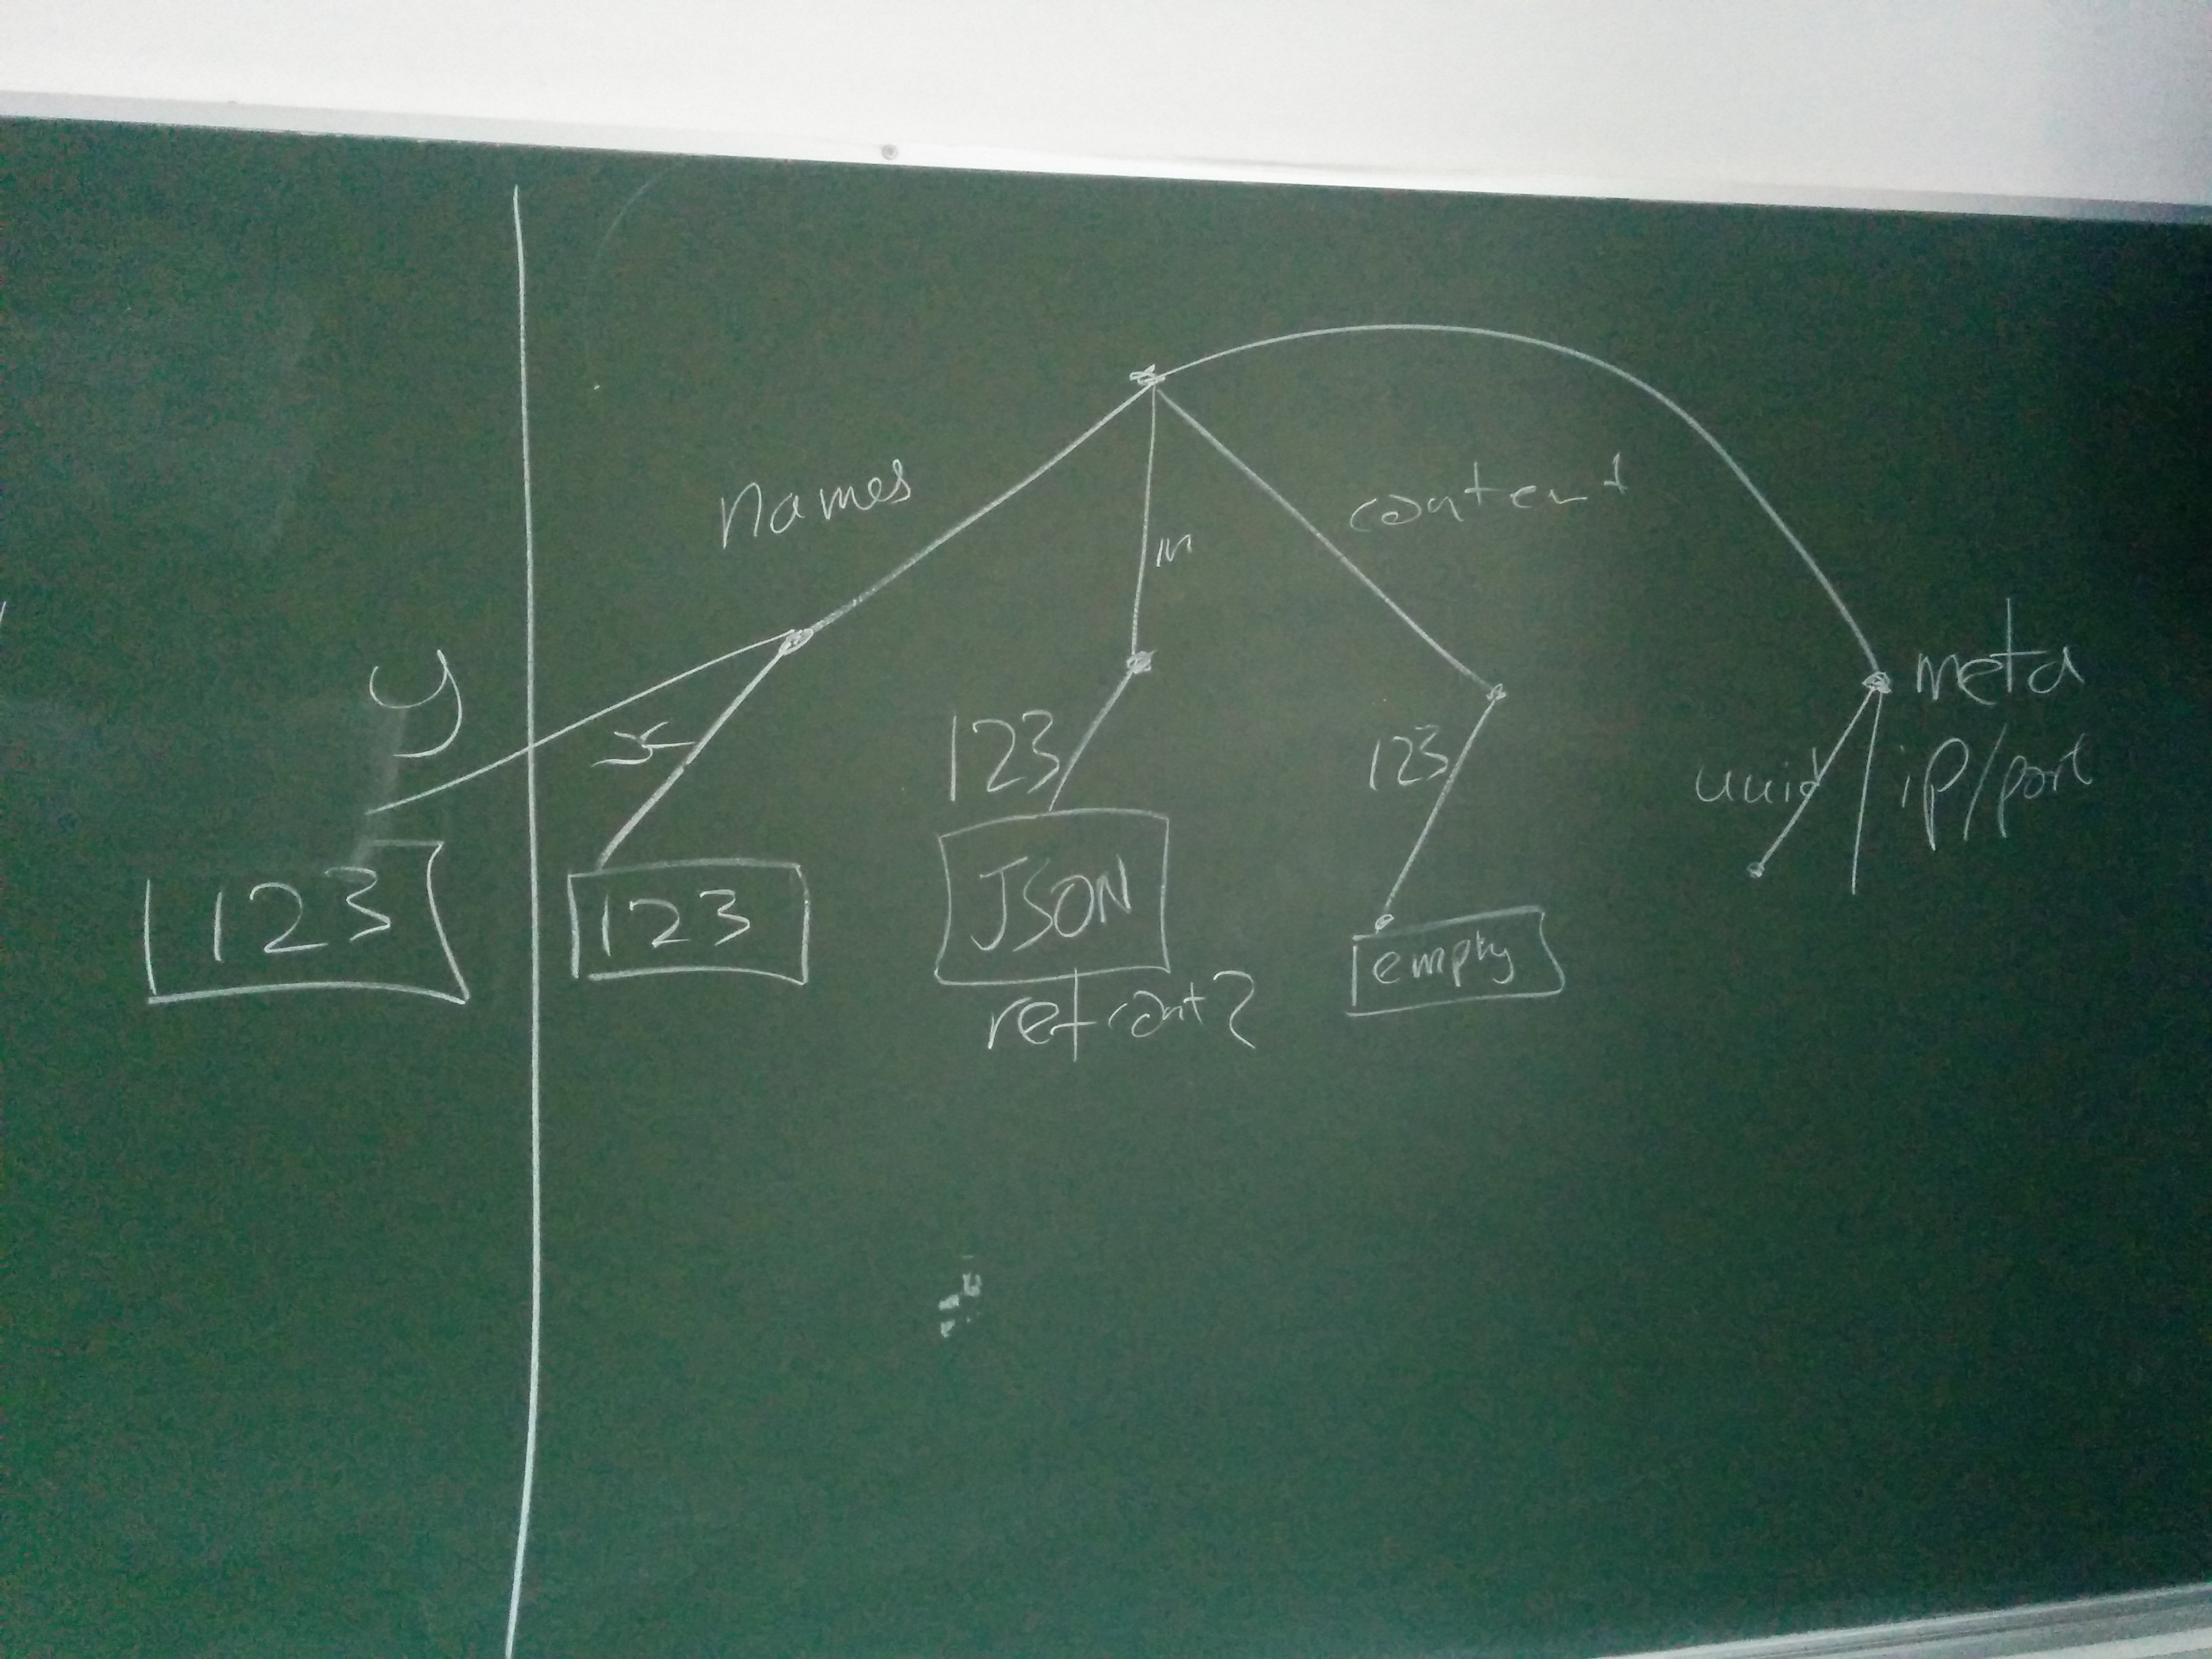 names
content
in
y
x
123
123
meta
uuid
ip/port
123
123
JSON
empty
refcont 2